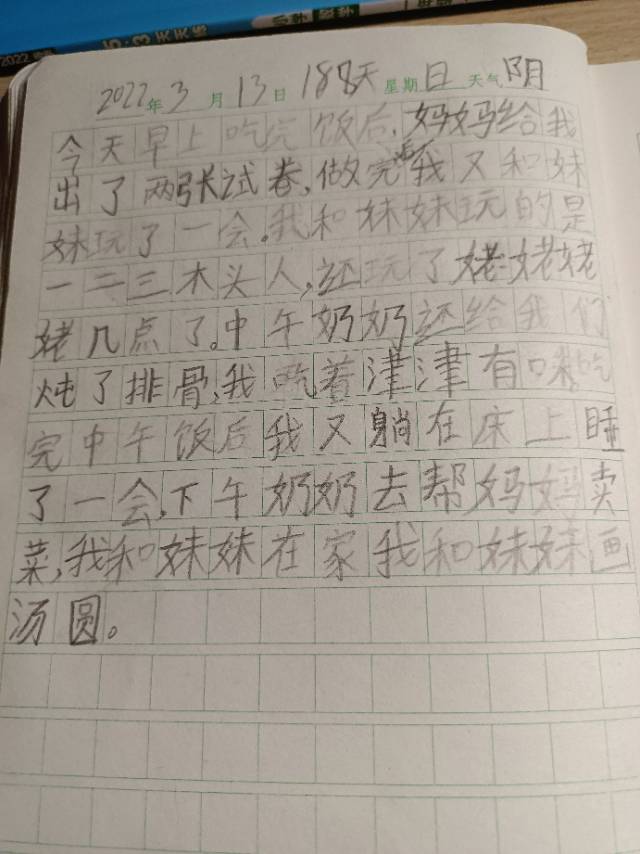 5·3天天练
2022年3月13日 188天 星期日 天气阴
今天早上吃完饭后,妈妈给我
出了两张试卷,做完后我又和妹
妹玩了一会。我和妹妹玩的是
一二三木头人,还玩了姥姥姥
姥几点了。中午奶奶还给我们
炖了排骨,我吃着津津有味。吃
完中午饭后我又躺在床上睡
了一会,下午奶奶去帮妈妈卖
菜,我和妹妹在家我和妹妹画
汤圆。